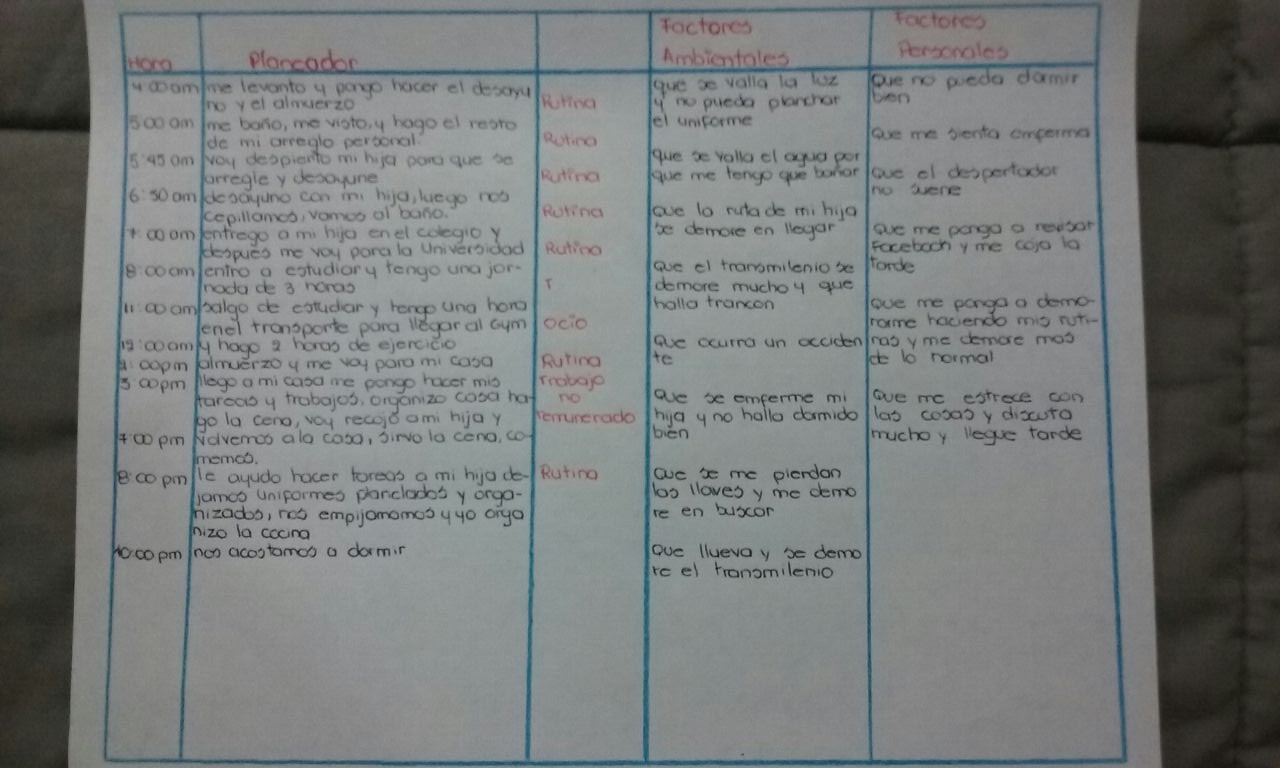 Hora
Planeador
Factores
Ambientales
Factores
Personales
4:00am
me levanto y pongo hacer el desayu
no y el almuerzo
Rutina
5:00 am
me baño, me visto, y hago el resto
de mi arreglo personal.
Rutina
5:45 am
voy despierto mi hija para que se
arregle y desayune
Rutina
6:30am
desayuno con mi hija, luego nos
cepillamos, vamos al baño.
Rutina
7:00am
entrego a mi hija en el colegio y
después me voy para la universidad
Rutina
8:00am
entro a estudiar y tengo una jor-
nada de 3 horas
T
11:00am
salgo de estudiar y tengo una hora
enel transporte para llegar al Gym
Ocio
12:00am
y hago 2 horas de ejercicio
:00pm
almuerzo y me voy para mi casa
Rutina
3:00pm
llego a mi casa me pongo hacer mis
tareas y trabajos, organizo casa ha-
go la cena, voy recojo a mi hija y
Trabajo
no
remunerado
7:00 pm
volvemos a la casa, sirvo la cena, co-
memos.
8:00 pm
le ayudo hacer tareas a mi hija de-
jamos uniformes planclados y orga-
nizados, nos empijamamos y yo orga
nizo la cocina
Rutina
10:00pm
nos acostamos a dormir
que se valla la luz
y no pueda planchar
el uniforme
que se valla el agua por
que me tengo que bañar
que la ruta de mi hija
se demore en llegar
que el transmilenio se
demore mucho y que
halla trancon
que ocurra un acciden
te
que se emferme mi
hija y no halla dormido
bien
que se me pierdan
las llaves y me demo
re en buscar
que llueva y se demo
re el transmilenio
que no pueda dormir
bien
que me sienta emferma
que el despertador
no suene
que me ponga a revisar
Facebooh y me coja la
tarde
que me ponga a demo-
rarme haciendo mis ruti-
nas y me demore mas
de lo normal
que me estrece con
las cosas y discuta
mucho y llegue tarde